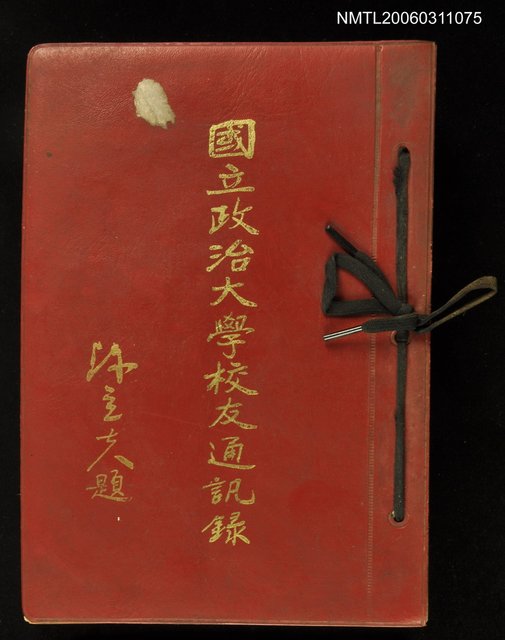 NMTL20060311075
國立政治大學校友通訊錄
陳立夫題